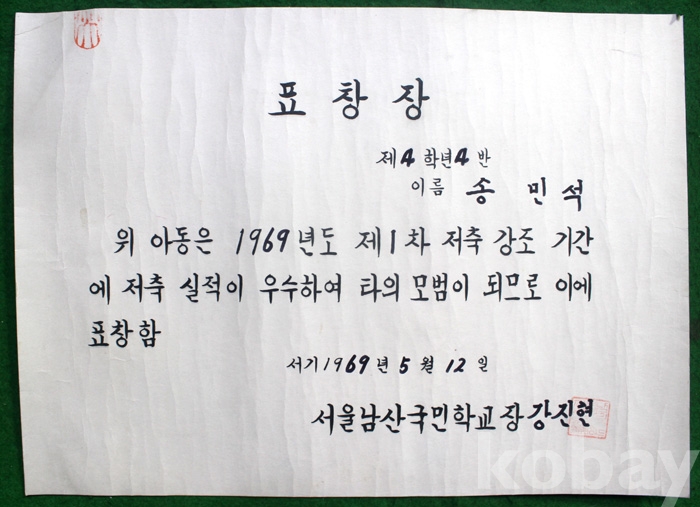 표창장
제4학년4반
이름 송민석
위 아동은 1969년도 제1차 저축 강조 기간
에 저축 실적이 우수하여 타의 모범이 되므로 이에
표창함
서기1969년 5월 12일
서울남산국민학교장 강진현
kobay